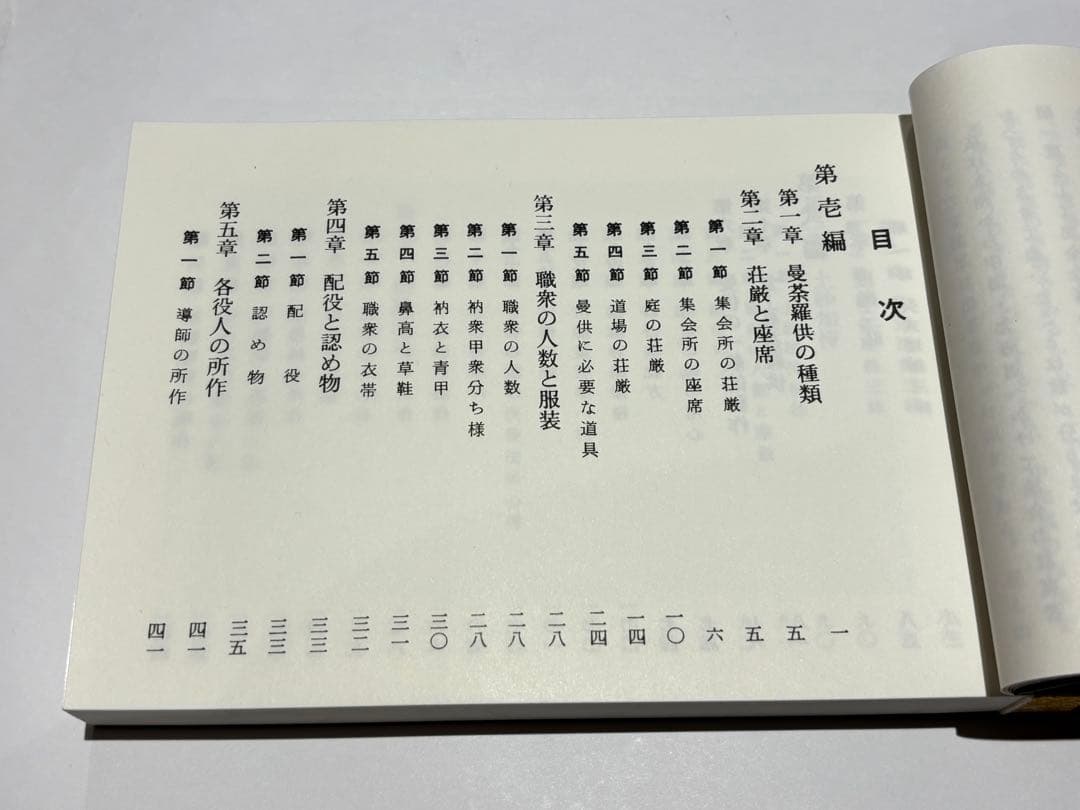 目次
第壱編
第一章 曼荼羅供の種類 一
第二章 荘厳と座席 五
第一節 集会所の荘厳 五
第二節 集会所の座席 六
第三節 庭の荘厳 一〇
第四節 道場の荘厳 一四
第五節 曼供に必要な道具 二四
第三章 職衆の人数と服装 二八
第一節 職衆の人数 二八
第二節 衲衆甲衆分ち様 二八
第三節 衲衣と青甲 三〇
第四節 鼻高と草鞋 三一
第五節 職衆の衣帯 三二
第四章 配役と認め物 三三
第一節 配役 三三
第二節 認め物 三五
第五章 各役人の所作 四一
第一節 導師の所作 四一